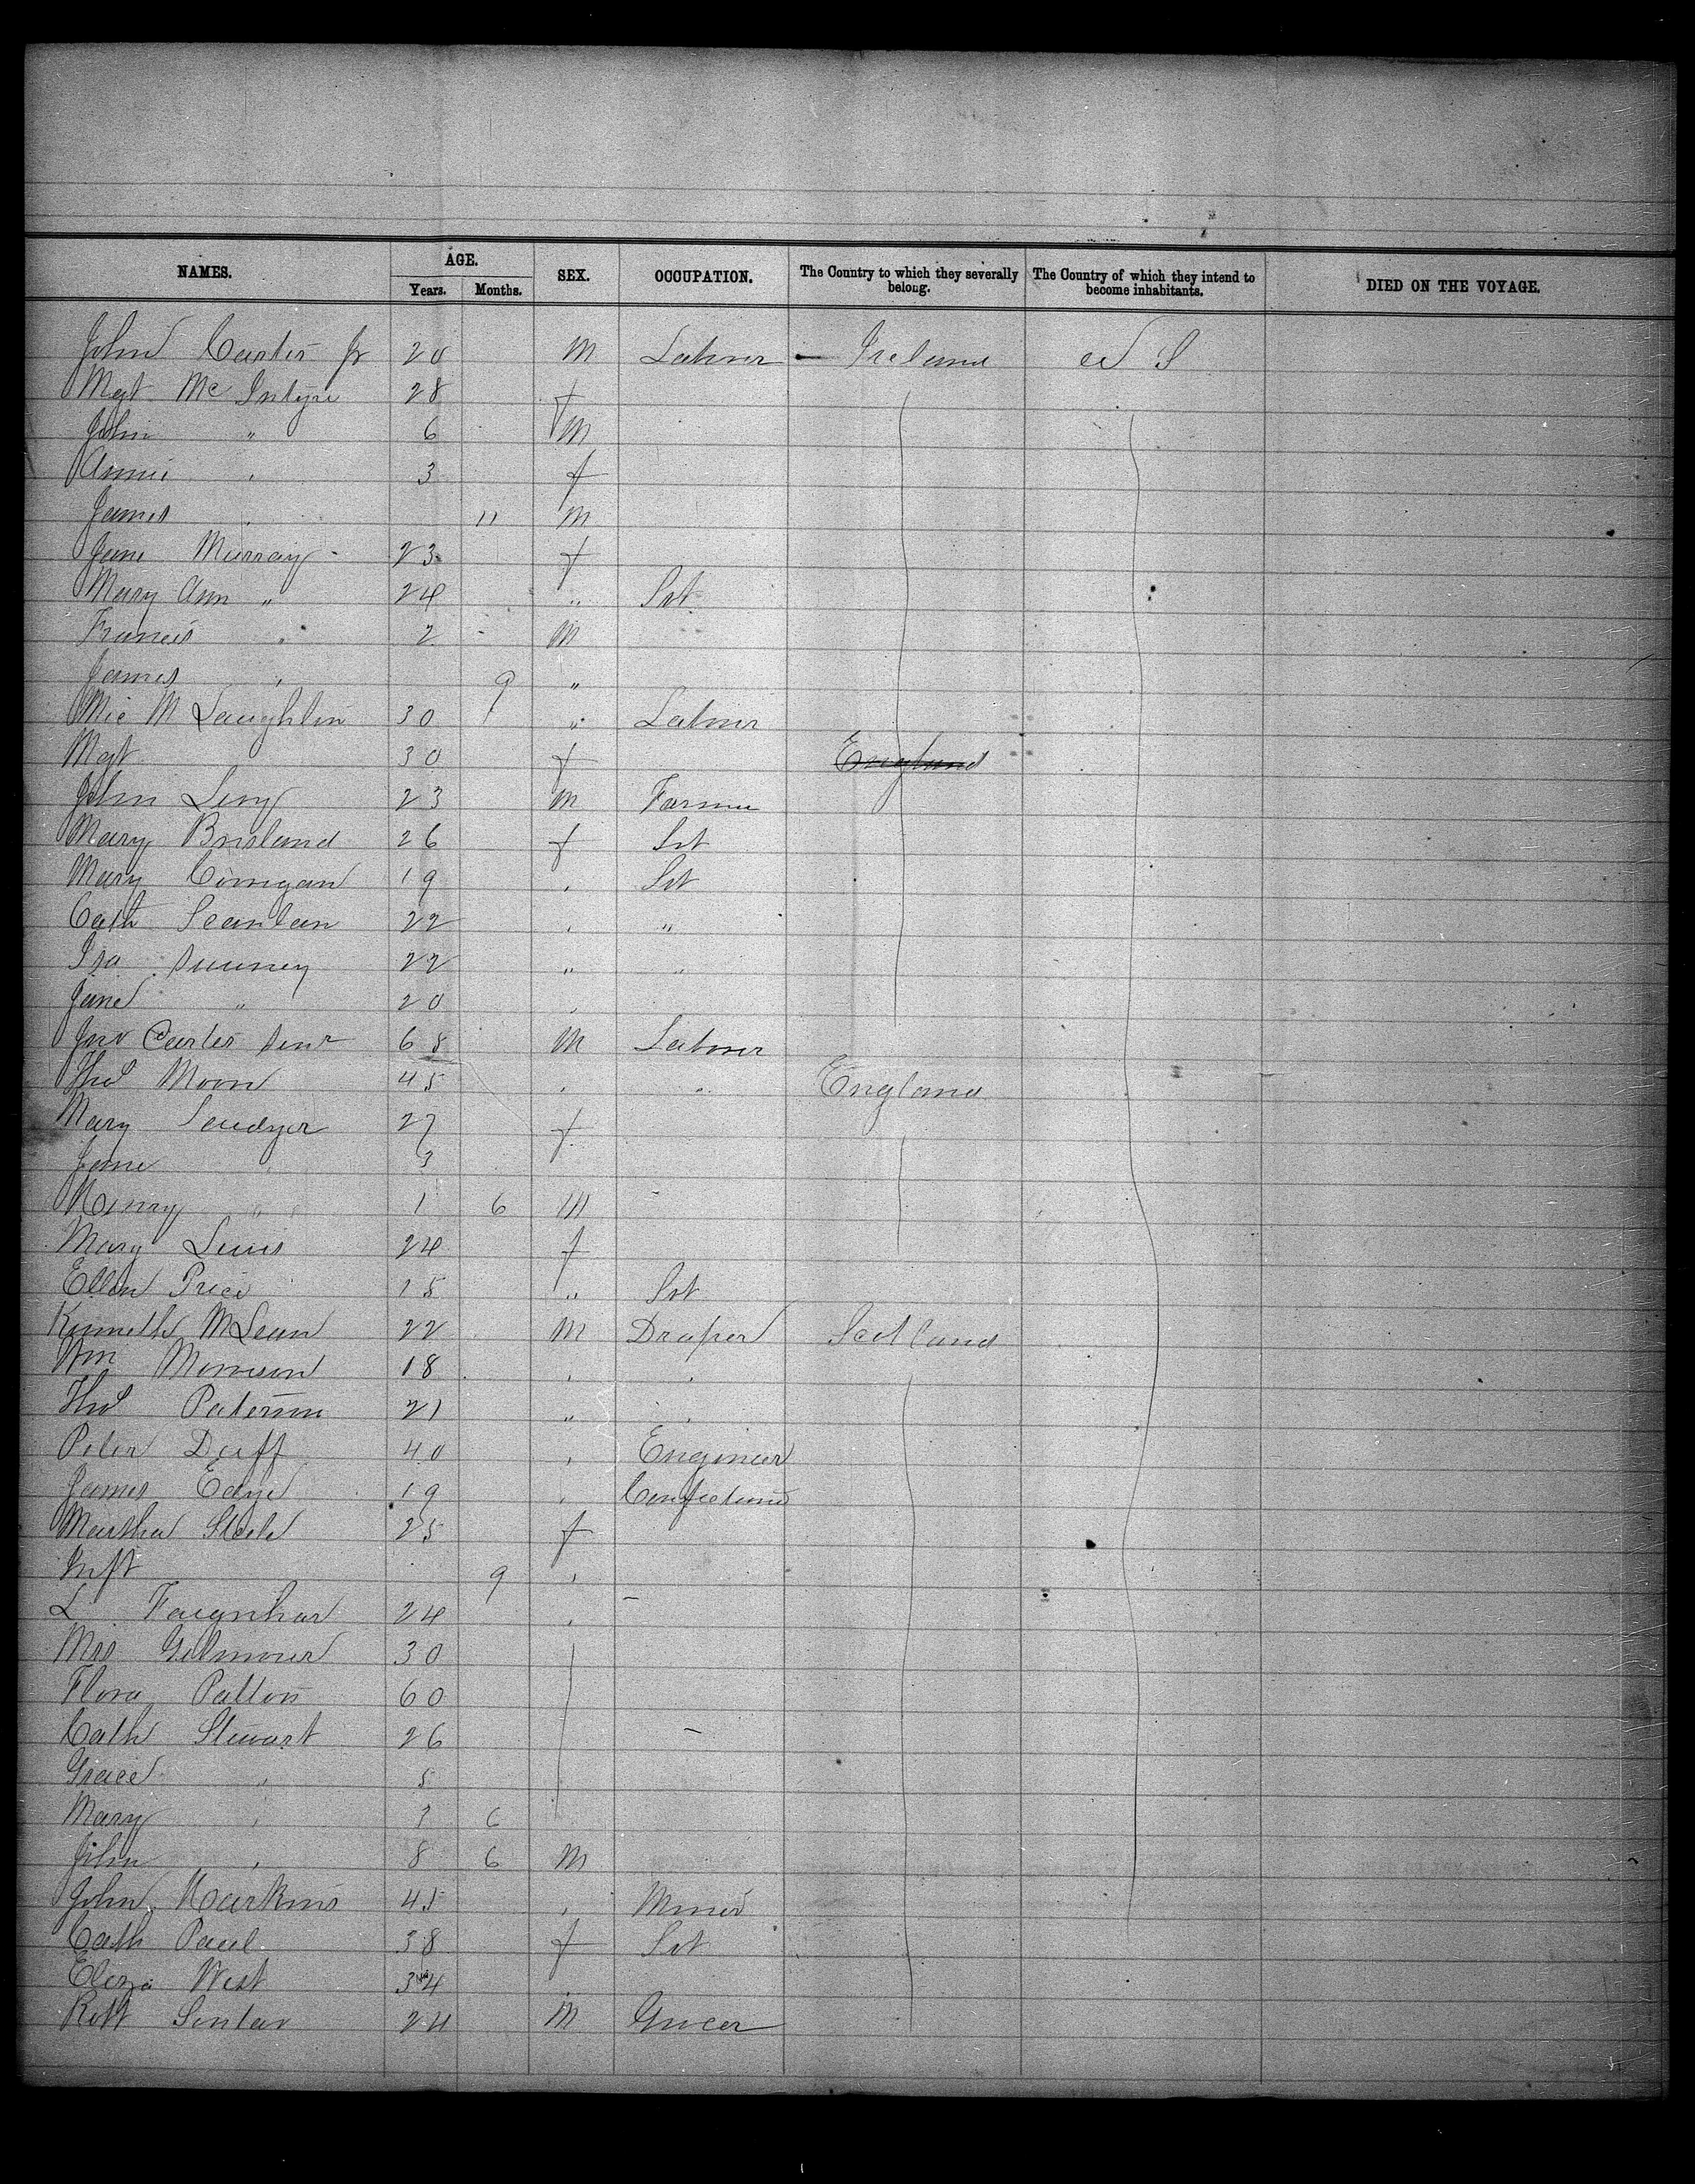 NAMES. AGE. SEX. OCCUPATION. The Country to which they severally belong. The Country of which they intend to become inhabitants. DIED ON THE VOYAGE.
Years. Months.
John Carter Jr 20 M Labourer - Ireland U S
Mgt McIntyre 28 f
John " 6 M
Annie " 3 f
James " 11 M
Jane Murray 23 f
Mary Ann " 24 " Svt
Francis " 2 - M
James " 9 "
Mic McLaughlin 30 " Labour
Mgt 30 f England
John 23 M Farmer
Mary Brisland 26 f Svt
Mary Corrigan 19 " Svt
Cath Scanlan 22 " "
Isa Sweeney 22 " "
Jane " 20 "
Jno Carter Senr 68 M Labour
Thos Moon 45 " " England
Mary 27 f
Jane " 3
Henry " 1 6 M
Mary Lewis 24 f
Ellen Price 15 " Svt
Kenneth McLean 22 M Draper Scotland
Wm Morrison 18 " "
Thos Paterson 21 " "
Peter Duff 40 " Engineer
James Edge 19 " Confectioner
Martha Steele 25 f
Inft 9 "
L Farquhar 24 " -
Mrs Gilmour 30
Flora Patton 60
Cath Stewart 26 -
Grace " 5
Mary " 3 6
John " 8 6 M
John Harkins 45 " Miner
Cath Paul 38 f Svt
Eliza West 34 "
Robt 24 M Grocer